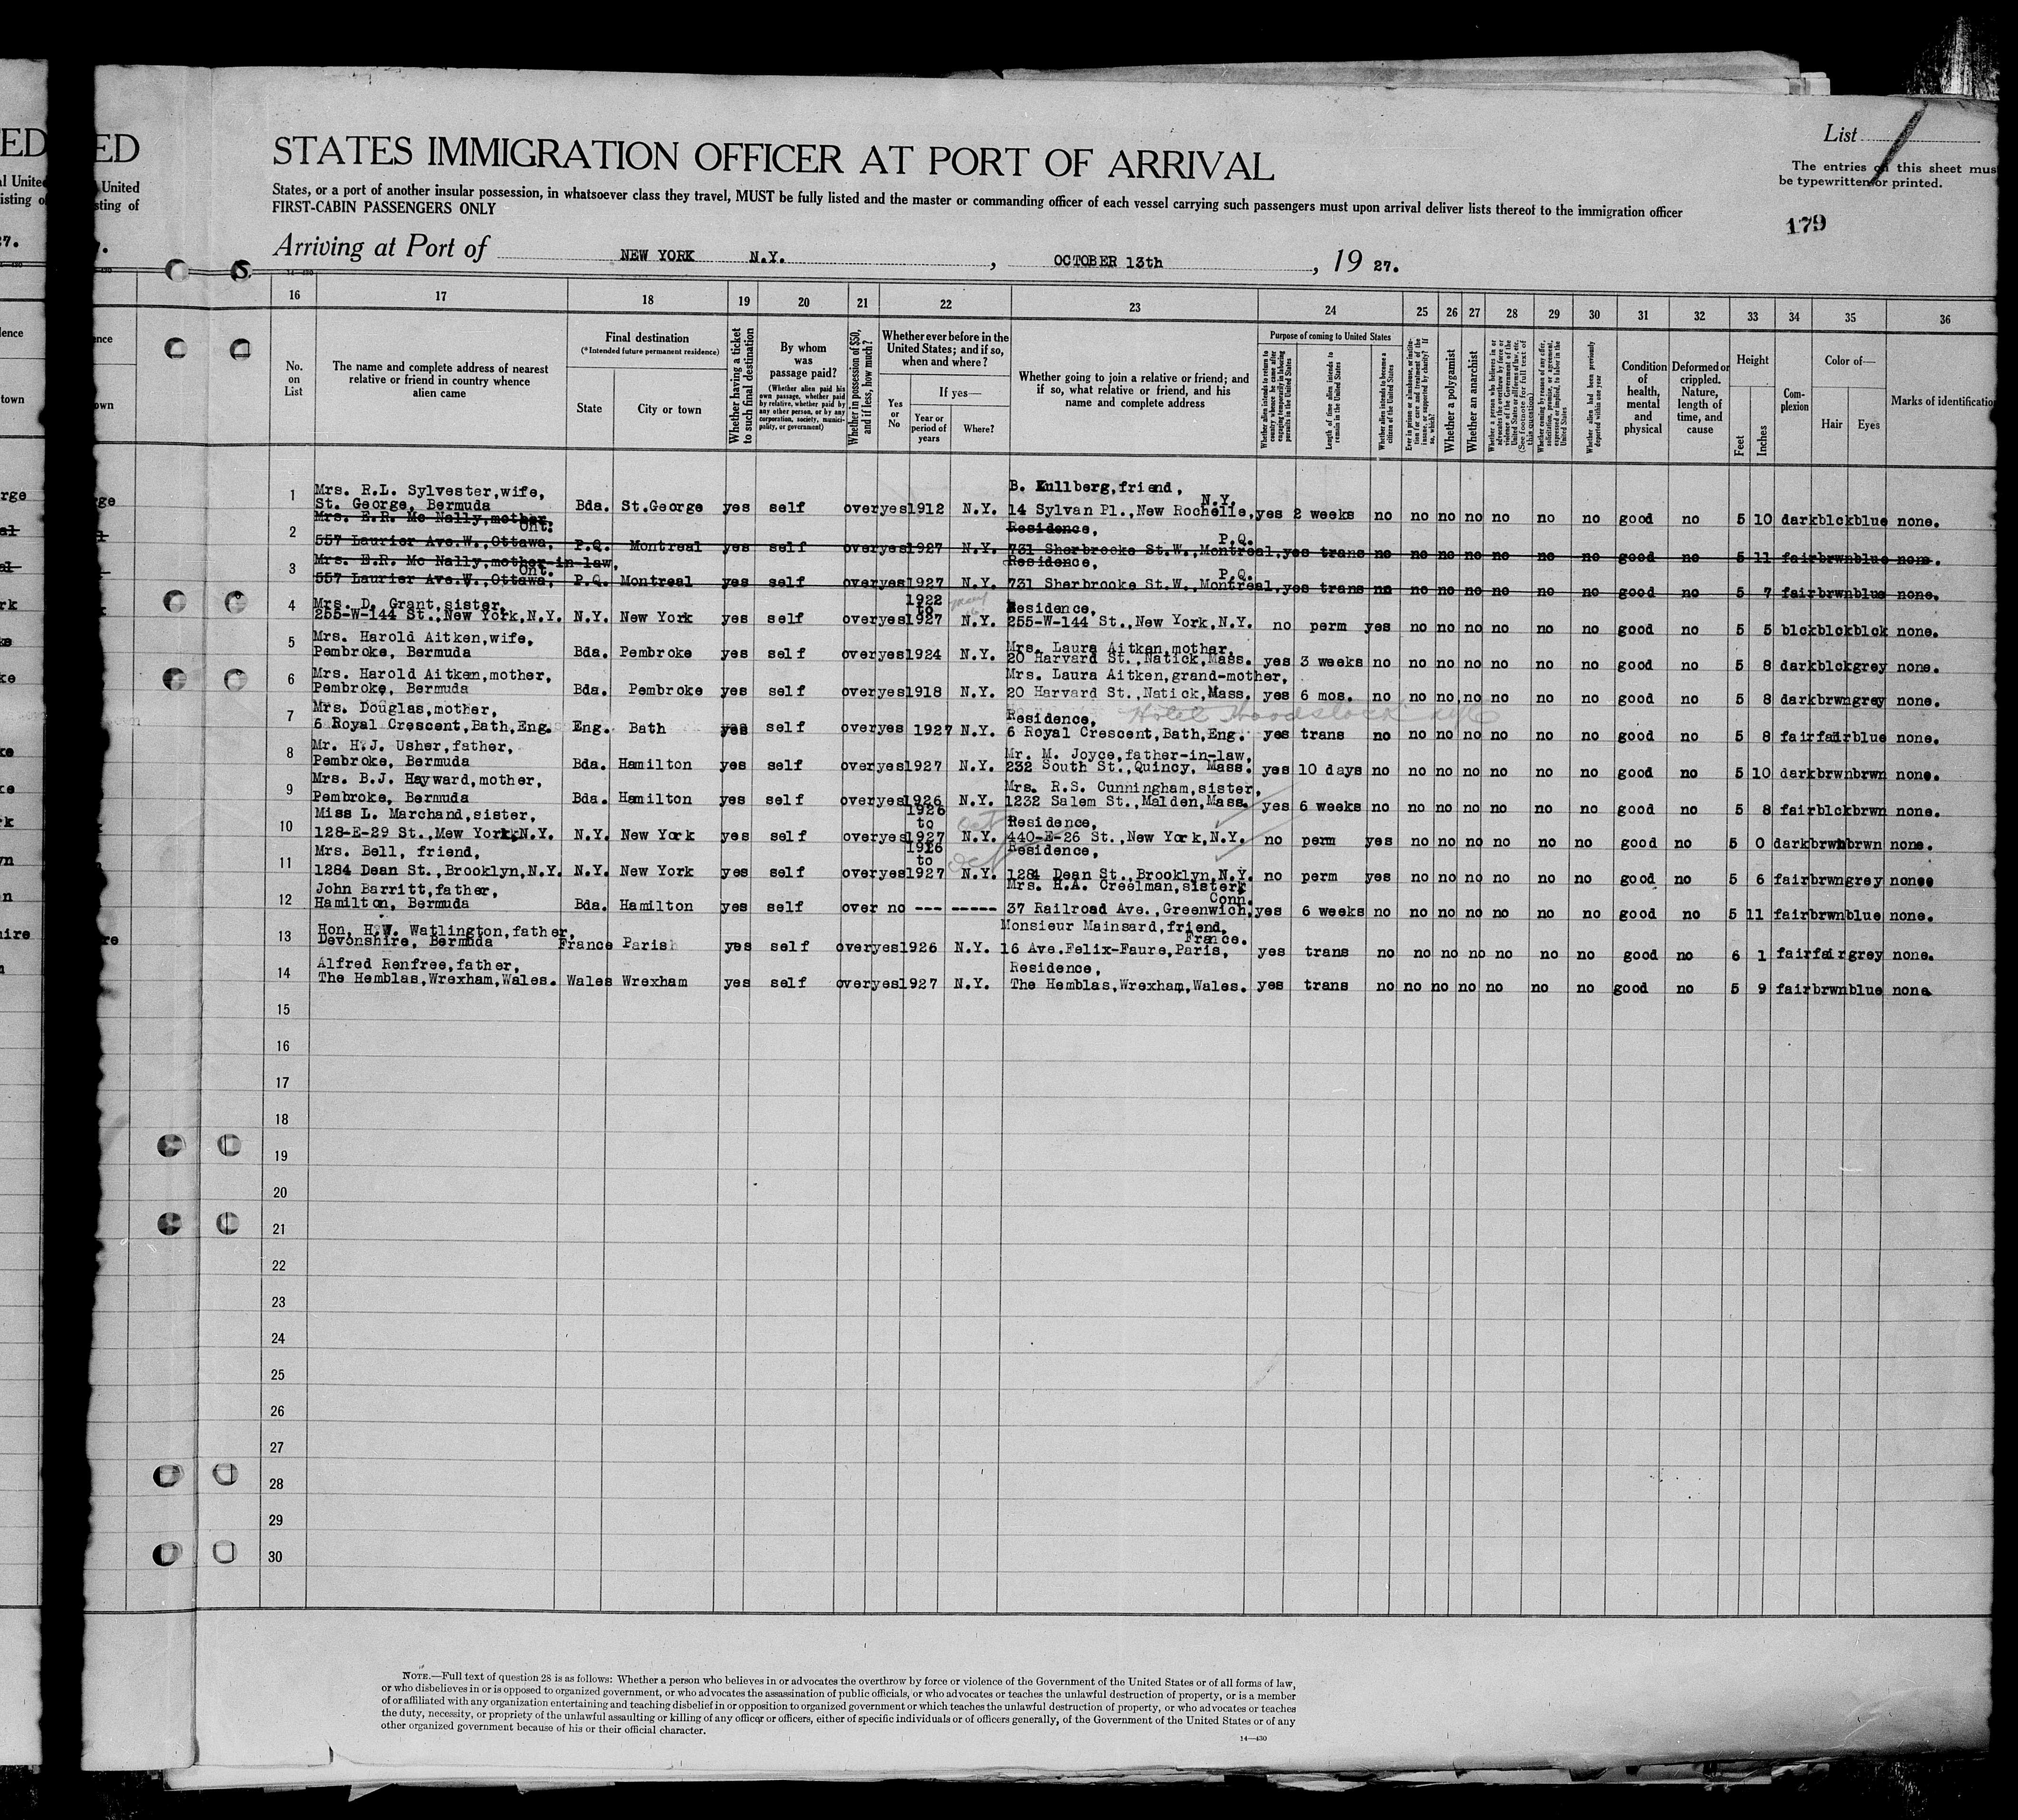 ED
ED
al United
United
isting of
sting of
27.
STATES IMMIGRATION OFFICER AT PORT OF ARRIVAL
List
The entries on this sheet must
be typewritten or printed.
States, or a port of another insular possession, in whatsoever class they travel, MUST be fully listed and the master or commanding officer of each vessel carrying such passengers must upon arrival deliver lists thereof to the immigration officer
FIRST-CABIN PASSENGERS ONLY
179
Arriving at Port of NEW YORK N.Y. , OCTOBER 13th , 19 27.
16 17 18 19 20 21 22 23 24 25 26 27 28 29 30 31 32 33 34 35 36
No. on List
The name and complete address of nearest relative or friend in country whence alien came
Final destination
(*Intended future permanent residence)
State
City or town
Whether having a ticket to such final destination
By whom was passage paid?
(Whether alien paid his own passage, whether paid by relative, whether paid by any other person, or by any corporation, society, municipality, or government)
Whether in possession of $50, and if less, how much?
Whether ever before in the United States; and if so, when and where?
Yes or No
If yes—
Year or period of years
Where?
Whether going to join a relative or friend; and if so, what relative or friend, and his name and complete address
Purpose of coming to United States
Whether alien intends to return to country whence he came after engaging temporarily in laboring pursuits in the United States
Length of time alien intends to remain in the United States
Whether alien intends to become a citizen of the United States
Ever in prison or almshouse, or institution for care and treatment of the insane, or supported by charity? If so, which?
Whether a polygamist
Whether an anarchist
Whether a person who believes in or advocates the overthrow by force or violence of the Government of the United States or all forms of law, etc. (See footnote for full text of this question)
Whether coming by reason of any offer, solicitation, promise, or agreement, expressed or implied, to labor in the United States
Whether alien had been previously deported within one year
Condition of health, mental and physical
Deformed or crippled. Nature, length of time, and cause
Height
Feet
Inches
Complexion
Color of—
Hair
Eyes
Marks of identification
1 Mrs. R.L. Sylvester,wife, St. George, Bermuda Bda. St.George yes self over yes 1912 N.Y. B. Kullberg,friend, 14 Sylvan Pl.,New Rochelle, N.Y. yes 2 weeks no no no no no no no good no 5 10 dark blck blue none.
2 Mrs. E.R. Mc Nally,mother, 557 Laurier Ave.W.,Ottawa, Ont. P.Q. Montreal yes self over yes 1927 N.Y. Residence, 731 Sherbrooke St.W.,Montreal, P.Q. yes trans no no no no no no no good no 5 11 fair brwn blue none.
3 Mrs. E.R. Mc Nally,mother-in-law, 557 Laurier Ave.W.,Ottawa, Ont. P.Q. Montreal yes self over yes 1927 N.Y. Residence, 731 Sherbrooke St.W.,Montreal, P.Q. yes trans no no no no no no no good no 5 7 fair brwn blue none.
4 Mrs. D. Grant,sister, 255-W-144 St.,New York,N.Y. N.Y. New York yes self over yes 1922 to 1927 N.Y. Residence, 255-W-144 St.,New York,N.Y. no perm yes no no no no no no good no 5 5 blck blck blck none.
5 Mrs. Harold Aitken,wife, Pembroke, Bermuda Bda. Pembroke yes self over yes 1924 N.Y. Mrs. Laura Aitken,mother, 20 Harvard St.,Natick,Mass. yes 3 weeks no no no no no no no good no 5 8 dark blck grey none.
6 Mrs. Harold Aitken,mother, Pembroke, Bermuda Bda. Pembroke yes self over yes 1918 N.Y. Mrs. Laura Aitken,grand-mother, 20 Harvard St.,Natick,Mass. yes 6 mos. no no no no no no no good no 5 8 dark brwn grey none.
7 Mrs. Douglas,mother, 6 Royal Crescent,Bath,Eng. Eng. Bath yes self over yes 1927 N.Y. Residence, Hotel Woodstock 6 Royal Crescent,Bath,Eng. yes trans no no no no no no no good no 5 8 fair fair blue none.
8 Mr. H.J. Usher,father, Pembroke, Bermuda Bda. Hamilton yes self over yes 1927 N.Y. Mr. M. Joyce,father-in-law, 232 South St.,Quincy, Mass. yes 10 days no no no no no no no good no 5 10 dark brwn brwn none.
9 Mrs. B.J. Hayward,mother, Pembroke, Bermuda Bda. Hamilton yes self over yes 1926 N.Y. Mrs. R.S. Cunningham,sister, 1232 Salem St.,Malden,Mass. yes 6 weeks no no no no no no no good no 5 8 fair blck brwn none.
10 Miss L. Marchand,sister, 128-E-29 St.,Mew York,N.Y. N.Y. New York yes self over yes 1926 to 1927 Oct N.Y. Residence, 440-E-26 St.,New York,N.Y. no perm yes no no no no no no good no 5 0 dark brwn brwn none.
11 Mrs. Bell, friend, 1284 Dean St.,Brooklyn,N.Y. N.Y. New York yes self over yes 1926 to 1927 Oct N.Y. Residence, 1284 Dean St.,Brooklyn,N.Y. no perm yes no no no no no no good no 5 6 fair brwn grey nonee
12 John Barritt,father, Hamilton, Bermuda Bda. Hamilton yes self over no --- ----- Mrs. H.A. Creelman,sister, 37 Railroad Ave.,Greenwich, Conn. yes 6 weeks no no no no no no no good no 5 11 fair brwn blue none.
13 Hon. H.W. Watlington,father, Devonshire, Bermuda France Paris yes self over yes 1926 N.Y. Monsieur Mainsard,friend, 16 Ave.Felix-Faure,Paris, France. yes trans no no no no no no no good no 6 1 fair fair grey none.
14 Alfred Renfree,father, The Hemblas,Wrexham,Wales. Wales Wrexham yes self over yes 1927 N.Y. Residence, The Hemblas,Wrexham,Wales. yes trans no no no no no no no good no 5 9 fair brwn blue none
15
16
17
18
19
20
21
22
23
24
25
26
27
28
29
30
NOTE.—Full text of question 28 is as follows: Whether a person who believes in or advocates the overthrow by force or violence of the Government of the United States or of all forms of law,
or who disbelieves in or is opposed to organized government, or who advocates the assassination of public officials, or who advocates or teaches the unlawful destruction of property, or is a member
of or affiliated with any organization entertaining and teaching disbelief in or opposition to organized government or which teaches the unlawful destruction of property, or who advocates or teaches
the duty, necessity, or propriety of the unlawful assaulting or killing of any officer or officers, either of specific individuals or of officers generally, of the Government of the United States or of any
other organized government because of his or their official character.
14—430